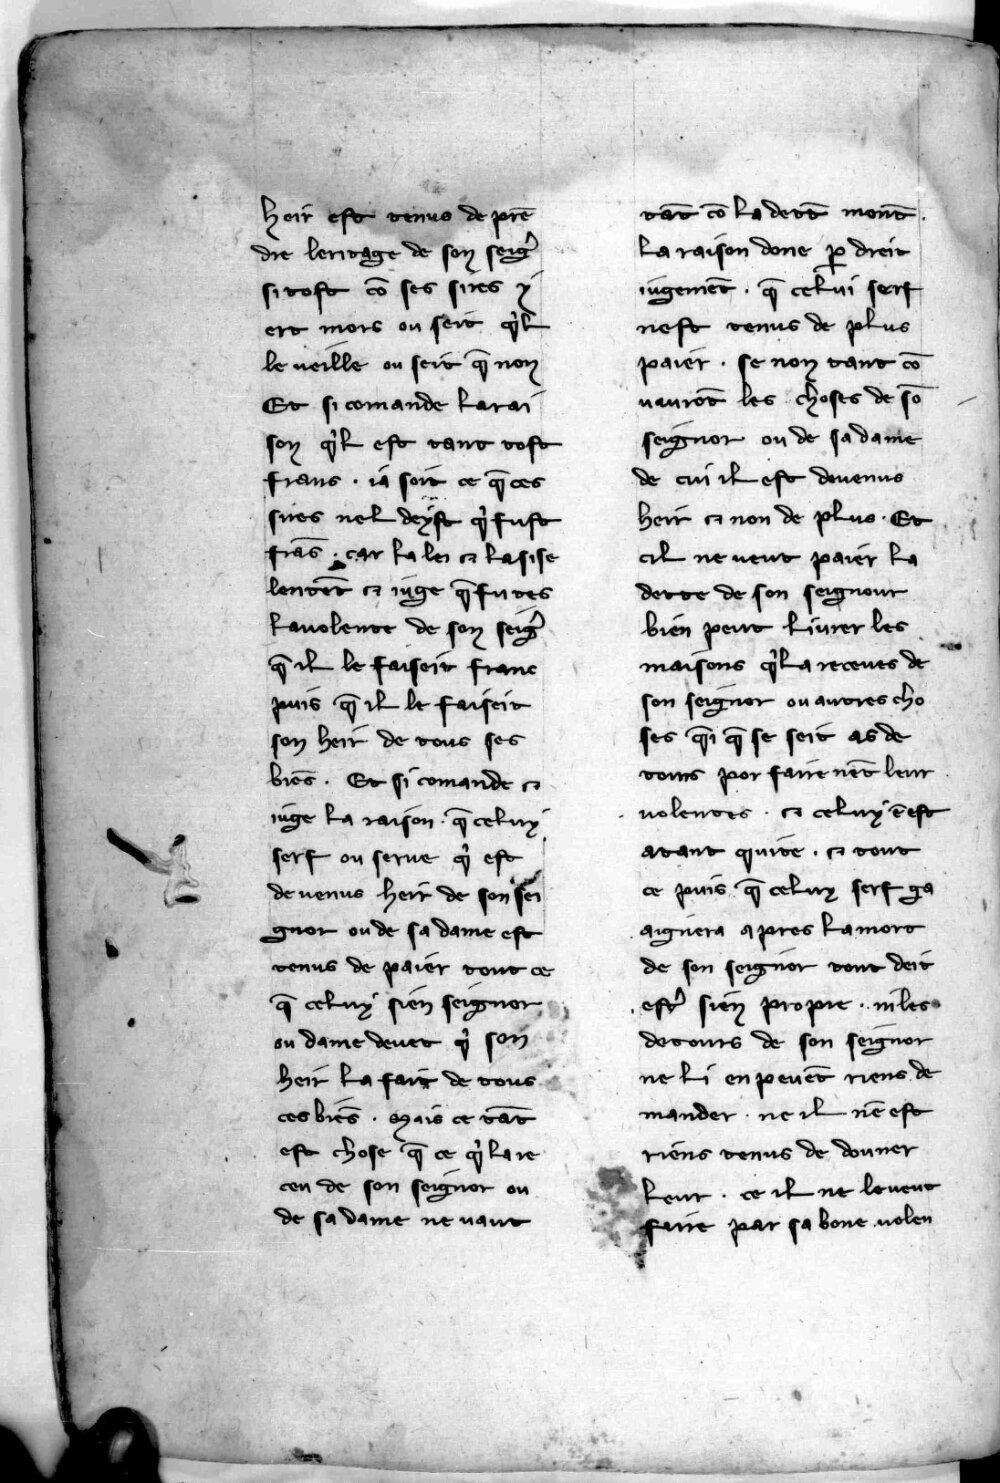 heir est tenus de prē
dre leritage de son seigͬ
si tost cō ses sires y
ert mors ou seit qͥl
le ueille ou seit q̄ non
Et si comande la rai
son qͥl est tant tost
frans . ia soit ce q̄ ces
sires nel deyst qͥ fust
frās . car la lei ⁊ lasise
lentēt ⁊ iuge q̄ fu tes
la uolente de son seigͬ
q̄ il le faiseit franc
puis q̄ il le faiseit
son heir de tous ses
biēs . Et si comande ⁊
iuge la raison . q̄ celuy
serf ou serue qͥ est
deuenus heir de son sei
gnor ou de sa dame est
tenus de paier tout ce
q̄ celuy sien seignor
ou dame deuet qͥ son
heir la fait de tous
ces biēs . Mais ce tāt
est chose q̄ ce qͥl a re
ceu de son seignor ou
de sa dame ne uaut
tāt cō la dett̄ mōt .
la raison done ꝑ dreit
iugemēt . q̄ celui serf
nest tenus de plus
paier . se non tant cō
uaurōt les choses de sō
seignor ou de sa dame
de cui il est deuenus
heir ⁊ non de plus . Et
cil ne ueut paier la
dette de son seignour
bien peut liurer les
maisons qͥl a receues de
son seignor ou autres cho
ses q̄i q̄ se seit as de
tours por faire nēt leur
uolentes . ⁊ celuy ē est
atant quite . ⁊ tout
ce puis q̄ celuy serf ga
aignera apres la mort
de son seignor tout deit
estͬ sien propre . ni les
detours de son seignor
ne li en peuēt riens de
mander . ne il nē est
riens tenus de douner
leur . ce il ne le ueut
faire par sa bone uolen